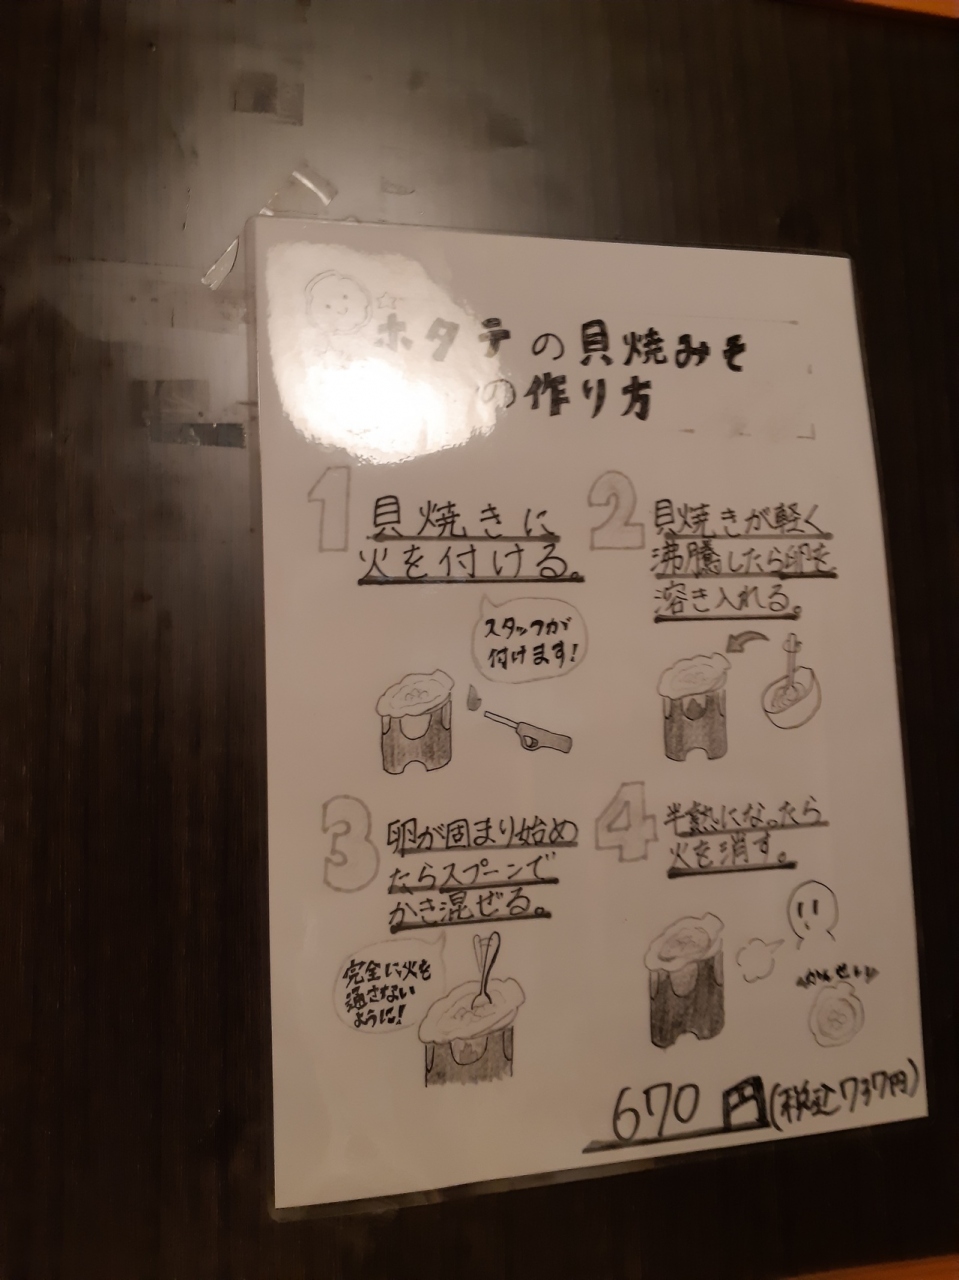 ホタテの貝焼みそ
の作り方
1
貝焼きに
火を付ける。
スタッフが
付けます!
2
貝焼きが軽く
沸騰したら卵を
溶き入れる。
3
卵が固まり始め
たらスプーンで
かき混ぜる。
完全に火を
通さない
ように!
4
半熟になったら
火を消す。
かんせい
670円(税込737円)